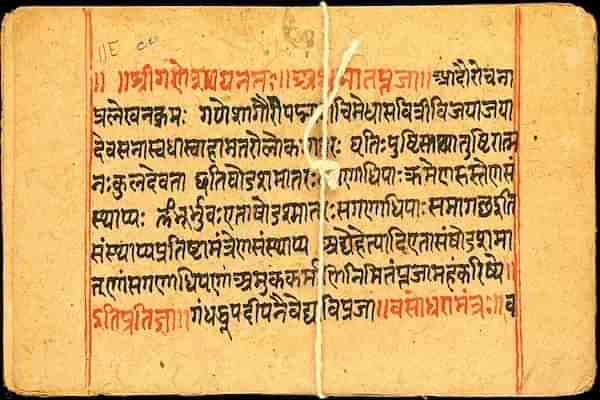 ॥E
॥ ॥श्रीगणेशायनमः॥अथमातृपूजा॥आदौरोचना
प्रलेखनक्रमः गणेशगौरीपद्माशचिमेधासवित्रीविजयाजया
देवसेनास्वधास्वाहामातरोलोकमातरः धृतिःपुष्टिस्तथातुष्टिरात्म
नःकुलदेवता इतिषोडशमातरः गणाधिपाः क्रमेणहस्तेनसं
स्थाप्यः ॐभूर्भुवःएताषोडशमातरःसगणाधिपाःसमागछइति
संस्थाप्यप्रतिष्ठामंत्रेणसंस्थाप्य अद्येहेत्यादिएतासंषोडशमा
तृणंसगणाधिपाणां अमुककर्मणिनिमितंपूजामहंकरिष्ये॥
इतिप्रतिज्ञा॥गंधधूपदीपनैवेद्य विपूजा॥वसोधरामंत्रः॥व